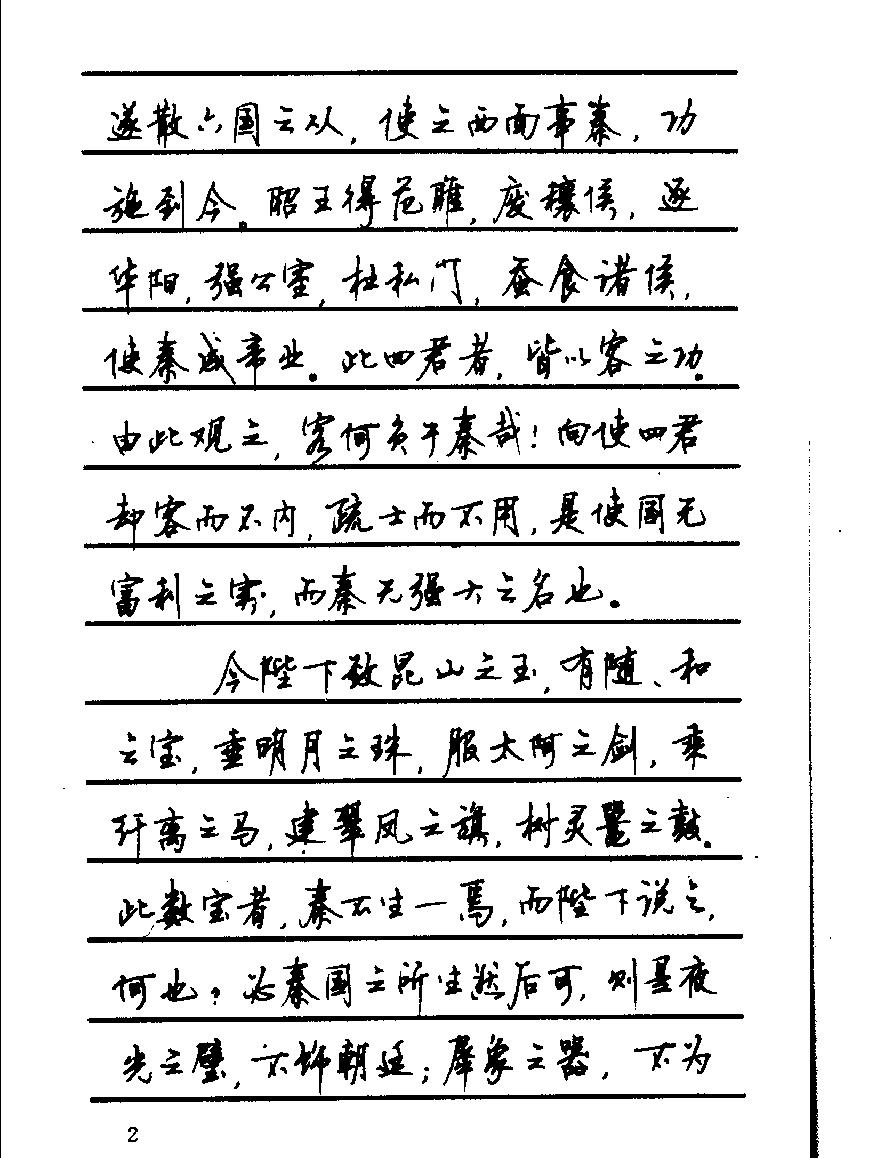 遂散六国之从，使之西面事秦，功
施到今。昭王得范雎，废穰侯，逐
华阳，强公室，杜私门，蚕食诸侯，
使秦成帝业。此四君者，皆以客之功。
由此观之，客何负于秦哉！向使四君
却客而不内，疏士而不用，是使国无
富利之实，而秦无强大之名也。
今陛下致昆山之玉，有随、和
之宝，垂明月之珠，服太阿之剑，乘
纤离之马，建翠凤之旗，树灵鼍之鼓。
此数宝者，秦不生一焉，而陛下说之，
何也？必秦国之所生然后可，则是夜
光之璧，不饰朝廷；犀象之器，不为
2